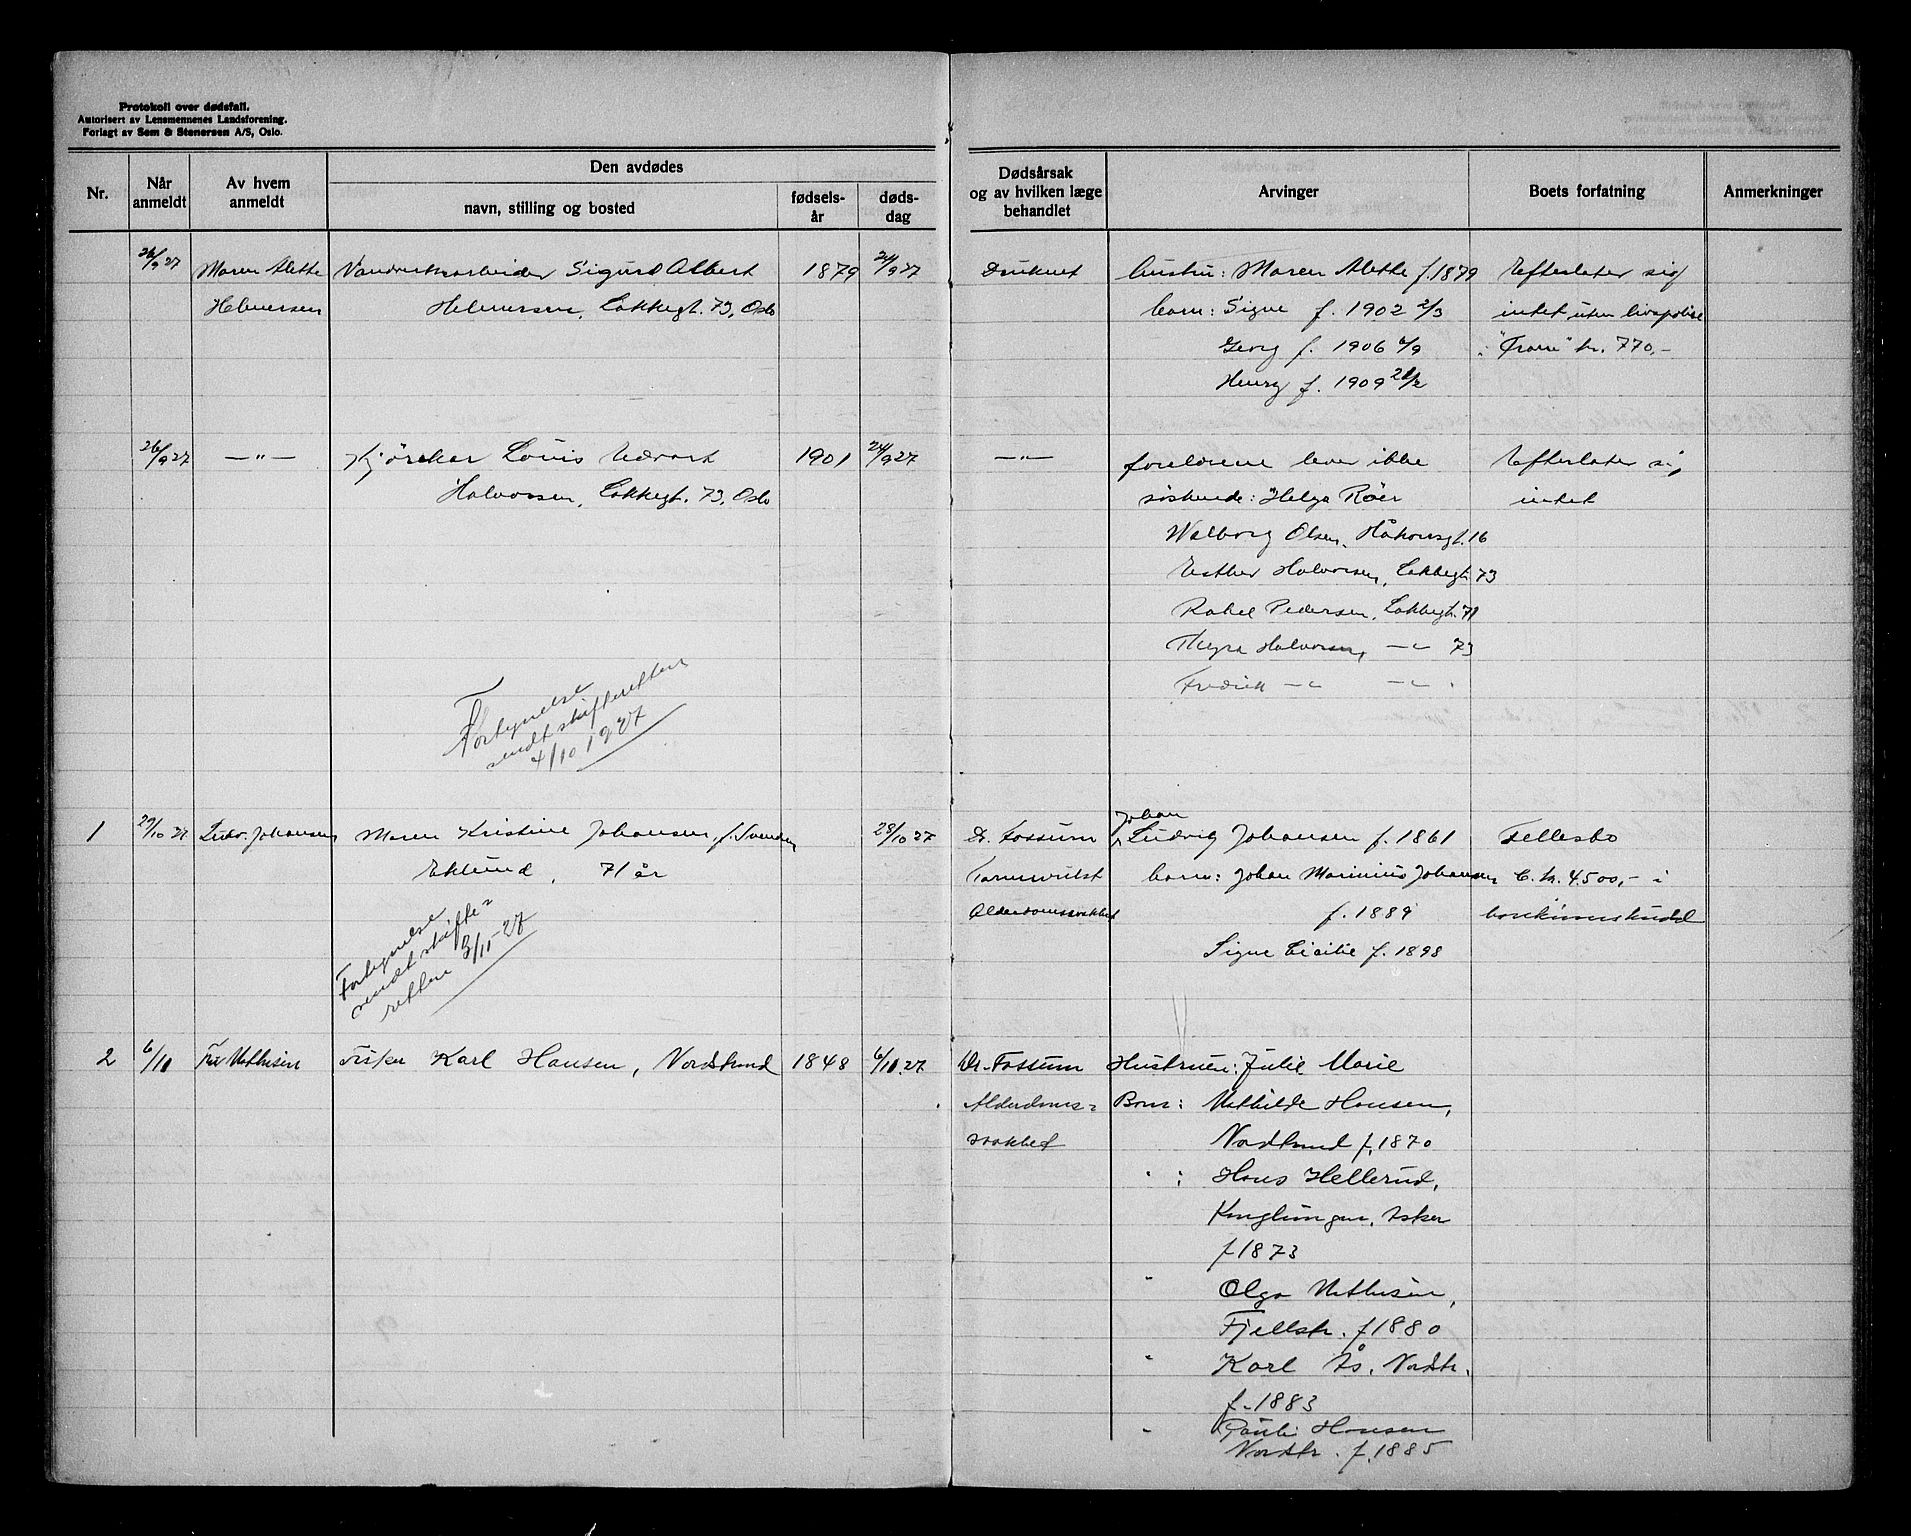 Protokoll over dødsfall.
Autorisert av Lensmennenes Landsforening.
Forlagt av Sem & Stenersen A/S, Oslo.
Nr.
Når anmeldt
Av hvem anmeldt
Den avdødes
navn, stilling og bosted
fødselsår
dødsdag
Dødsårsak og av hvilken læge behandlet
Arvinger
Boets forfatning
Anmerkninger
26/9 27 Maren Alette Vandverksarbeider Sigurd Albert 1879 24/9 27 Druknet hustru: Maren Alette f. 1879 Efterlater sig
Helmersen Helmersen, Lakkegt. 73, Oslo barn: Signe f. 1902 2/3 intet uten livspolise
Georg f. 1906 6/9 i "Fram" kr. 770,-
Henry f. 1909 21/2
26/9 27 —"— Kjørekar Louis Edvart 1901 24/9 27 —"— foreldrene lever ikke Efterlater sig
Halvorsen, Lakkegt. 73, Oslo søskende: Helga Röer intet
Walborg Olsen, Håkonsgt. 16
Esther Halvorsen, Lakkegt. 73
Rakel Pedersen, Lakkegt. 71
Thyra Halvorsen, —"— 73
Fredrik —"— —"—
Fortegnelse
sendt skifteretten
4/10 1927
1 29/10 27 Ludv. Johansen Maren Kristine Johansen, f. Svendsen 28/10 27 Dr. Fossum Johan Ludvig Johansen f. 1861 Fellesbo
Eklund, 71 år Tarmvulst barn: Johan Marinius Johansen C. kr. 4.500,- i
Alderdomssvakhet f. 1889
Signe Cicilie f. 1898
Fortegnelse
sendt skifte=
retten 3/11-27
2 6/11 Fru Mathisen Fisker Karl Hansen, Nordstrand 1848 6/11.27 Dr. Fossum Hustruen: Julie Marie
Alderdoms= Barn: Mathilde Hansen,
svakhet Nordstrand f. 1870
" : Hans Hellerud,
Asker
f 1873
" Olga Mathisen,
Fjellstr. f 1880
" Karl Ås, Nordstr.
f. 1883
" Hansen
Nordstr. f. 1885